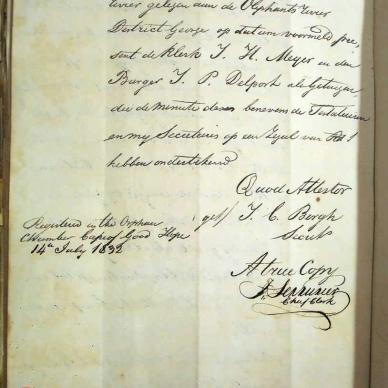 rivier gelegen aan de Olyphants rivier
District George op datum voormeld pre,
sent de Klerk J. H. Meyer en den
Burger J. P. Delport als Getuigen,
die de minute dezes benevens de Testateuren
en my Secretaris op een Zegel van
hebben ondertekend
Quod Attestor
get/ J. C. Borgh
Secrts
Registered in the Orphan
Chamber Cape of Good Hope
14th July 1832
A true Copy
Serrurier
Chief Clerk